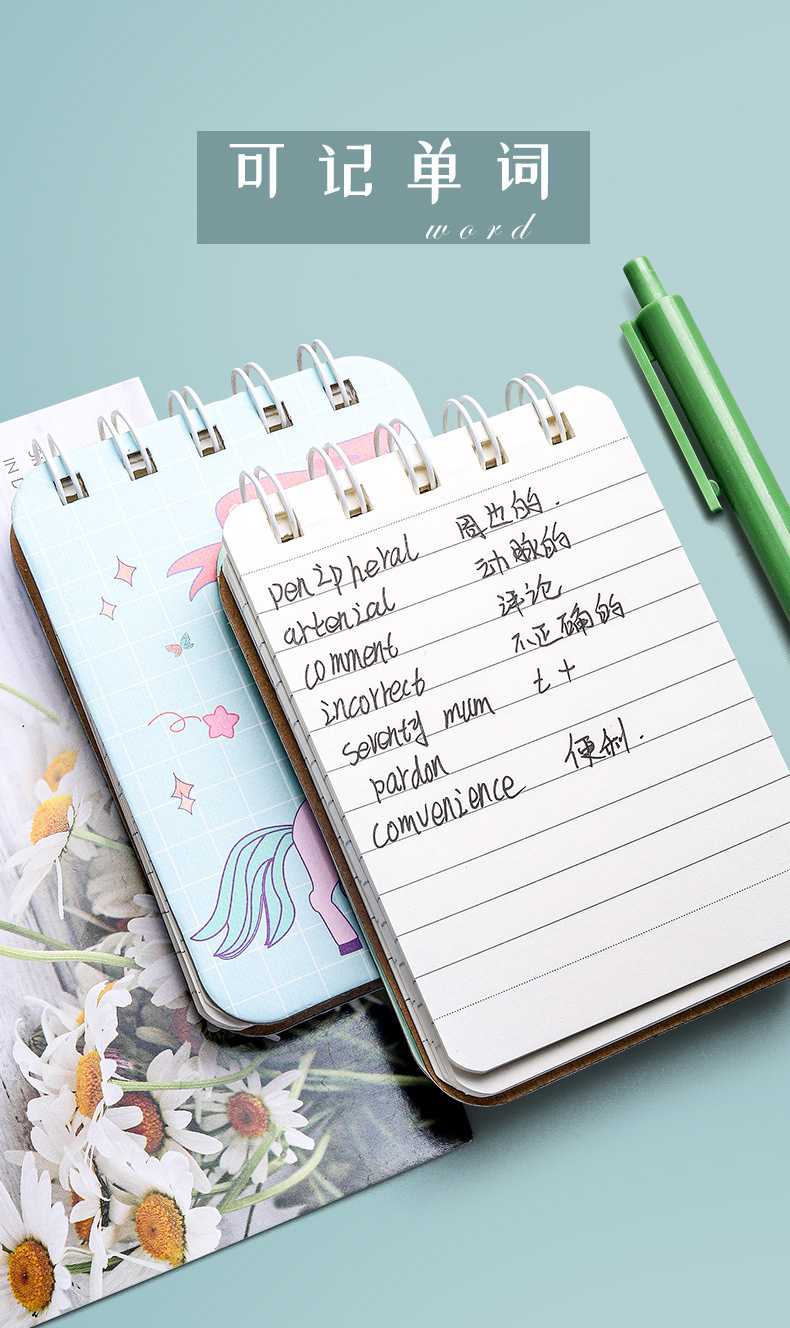 可记单词
word
peripheral 周边的.
arterial 动脉的
comment 评论
incorrect 不正确的
seventy mum t+
pardon
comvenience 便利.